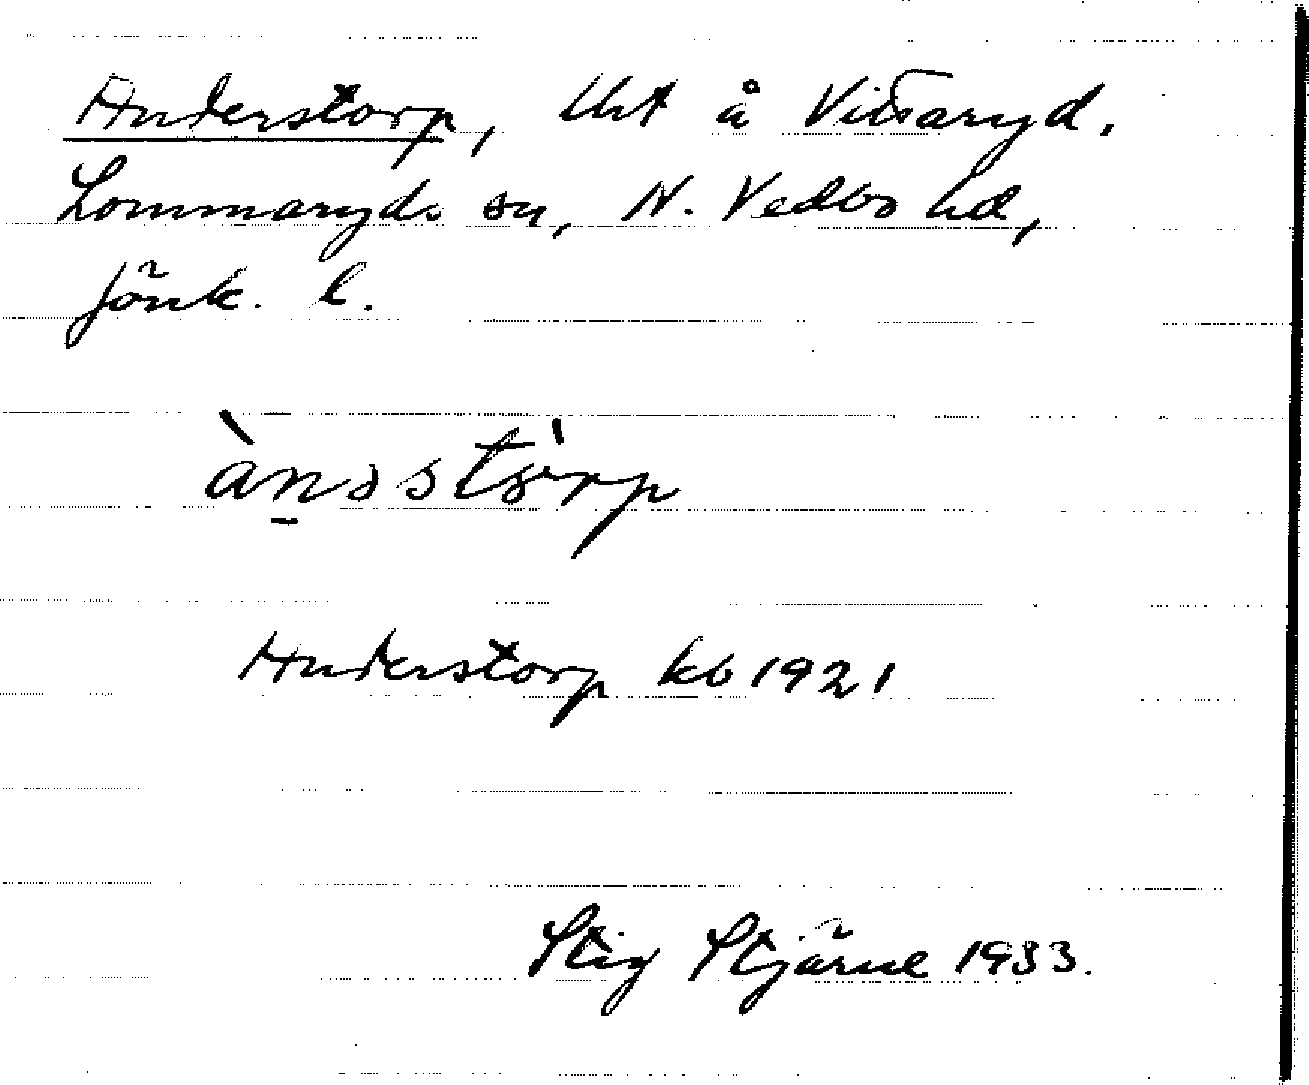 Anderstorp, Uht å Vittaryd.
Lommaryds sn, N. Vedbo hd,
Jönk. l.
ànəstórp
Anderstorp kb 1921
Stig Stjärne 1933.